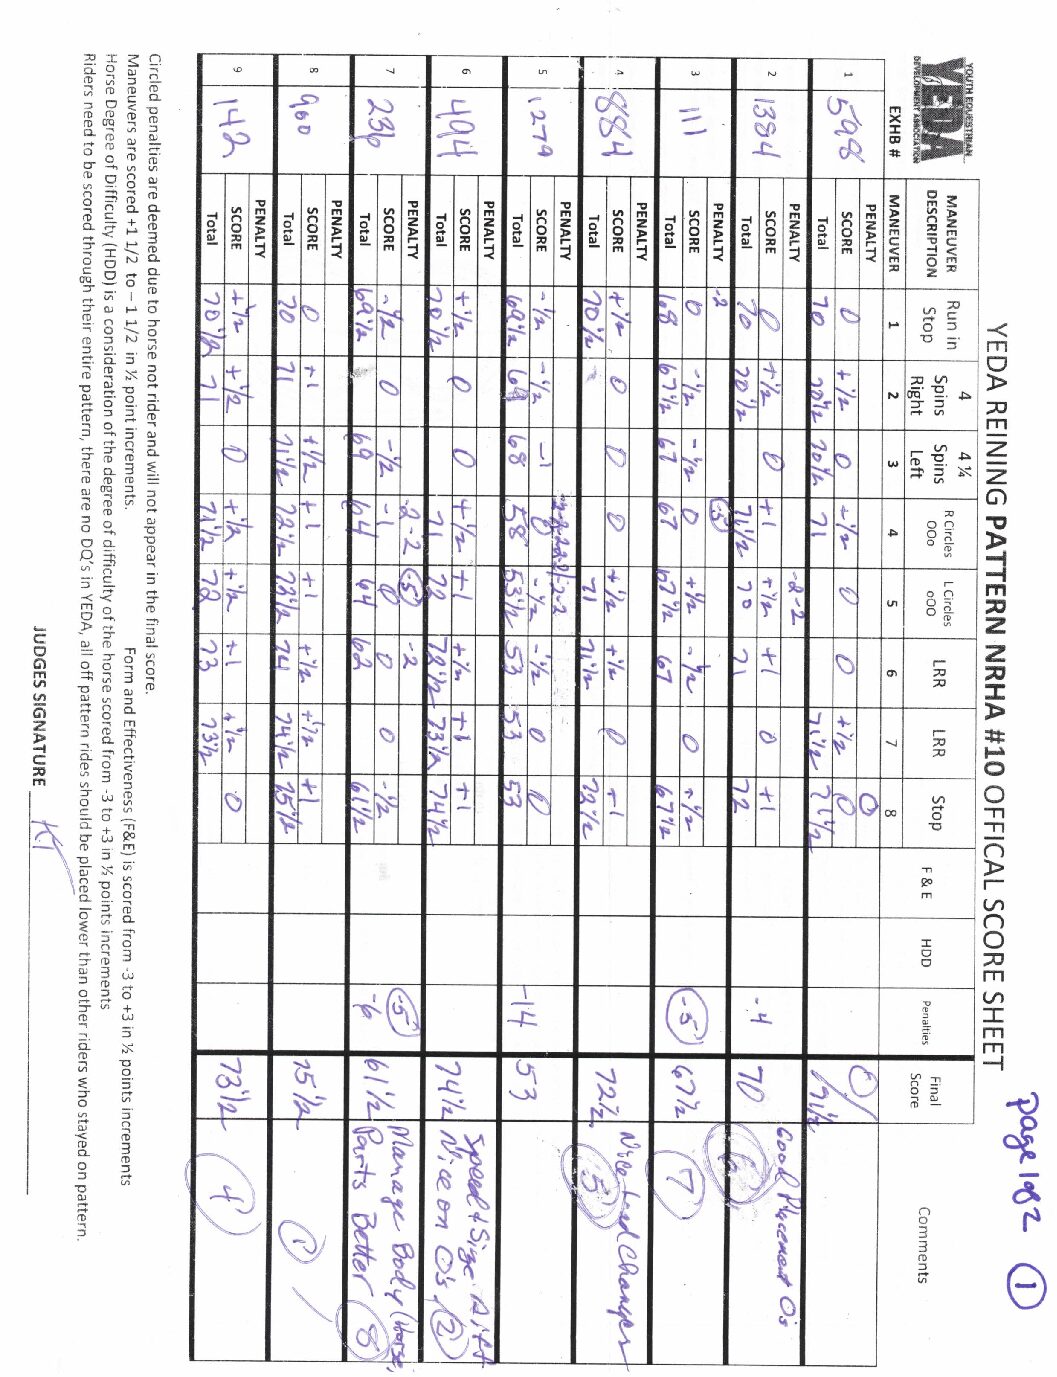 YEDA REINING PATTERN NRHA #10 OFFICAL SCORE SHEET
page 1 of 2 ①
YOUTH EQUESTRIAN
YEDA
DEVELOPMENT ASSOCIATION
EXHB #
MANEUVER DESCRIPTION Run in Stop 4 Spins Right 4 ¼ Spins Left R Circles OOo L Circles oOO LRR LRR Stop F & E HDD Penalties Final Score Comments
MANEUVER 1 2 3 4 5 6 7 8
1 598
PENALTY 0 0
SCORE 0 +½ 0 +½ 0 0 +½ 0
Total 70 70½ 70½ 71 71½ 71½ 71½
2 1384
PENALTY -2-2 Good Placement O's
SCORE 0 +½ 0 +1 +½ +1 0 +1 -4
Total 70 70½ 71½ 70 71 72 70 6
3 111
PENALTY -2 -5
SCORE 0 -½ -½ 0 +½ -½ 0 +½ -5
Total 68 67½ 67 67 67½ 67 67½ 67½ 7
4 884
PENALTY
SCORE +½ 0 0 0 +½ +½ 0 +1 Nice Lead Changes
Total 70½ 71 71½ 72½ 72½ 5
5 1279
PENALTY
SCORE -½ -½ -1 0 -½ -½ 0 0 -14
Total 69½ 69 68 58 53½ 53 53 53 53
6 494
PENALTY
SCORE +½ 0 0 +½ +1 +½ +1 +1 Speed + Size Diff
Total 70½ 71 72 72½ 73½ 74½ 74½ Nice on O's 2
7 236
PENALTY -2-2 -5 -2
SCORE -½ 0 -½ -1 0 0 0 -½ -5 Manage Body (Horse,
Total 69½ 69 64 64 62 61½ -6 61½ Parts Better 8
8 960
PENALTY
SCORE 0 +1 +½ +1 +1 +½ +½ +1
Total 70 71 71½ 72½ 73½ 74 74½ 75½ 75½ 1
9 142
PENALTY
SCORE +½ +½ 0 +½ +½ +1 +½ 0
Total 70½ 71 71½ 72 73 73½ 73½ 4
Circled penalties are deemed due to horse not rider and will not appear in the final score.
Maneuvers are scored +1 1/2 to – 1 1/2 in ½ point increments. Form and Effectiveness (F&E) is scored from -3 to +3 in ½ points increments
Horse Degree of Difficulty (HDD) is a consideration of the degree of difficulty of the horse scored from -3 to +3 in ½ points increments
Riders need to be scored through their entire pattern, there are no DQ's in YEDA, all off pattern rides should be placed lower than other riders who stayed on pattern.
JUDGES SIGNATURE